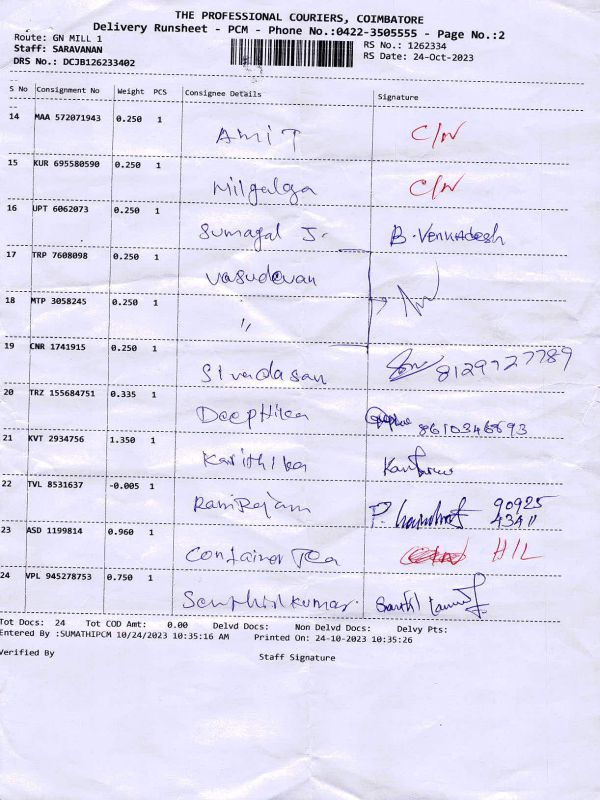 THE PROFESSIONAL COURIERS, COIMBATORE
Delivery Runsheet - PCM - Phone No.:0422-3505555 - Page No.:2
Route: GN MILL 1 RS No.: 1262334
Staff: SARAVANAN RS Date: 24-Oct-2023
DRS No.: DCJB126233402
S No Consignment No Weight PCS Consignee Details Signature
14 MAA 572071943 0.250 1 AMIT C/N
15 KUR 695580590 0.250 1 Milgalga C/N
16 UPT 6062073 0.250 1 Sumagal J. B. Venkadesh
17 TRP 7608098 0.250 1 Vasudevan
18 MTP 3058245 0.250 1 "
19 CNR 1741915 0.250 1 Sivadasan 8129727789
20 TRZ 155684751 0.335 1 Deephika 8610346893
21 KVT 2934756 1.350 1 Karithika
22 TVL 8531637 -0.005 1 RamRajam 90925
43411
23 ASD 1199814 0.960 1 Container Tea H/L
24 VPL 945278753 0.750 1 Senthilkumar.
Tot Docs: 24 Tot COD Amt: 0.00 Delvd Docs: Non Delvd Docs: Delvy Pts:
Entered By :SUMATHIPCM 10/24/2023 10:35:16 AM Printed On: 24-10-2023 10:35:26
Verified By Staff Signature